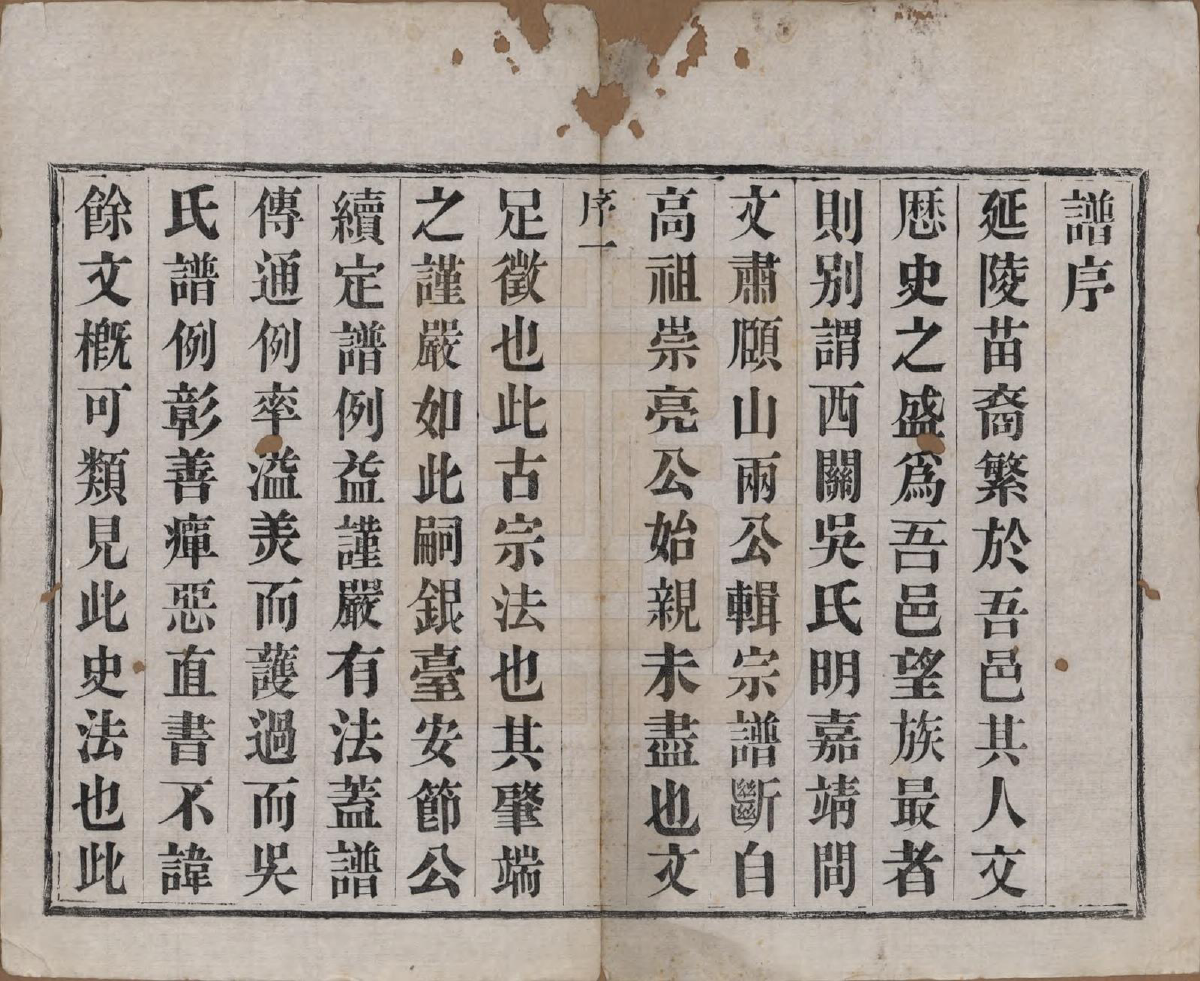 譜序
延陵苗裔繁於吾邑其人文
歷史之盛爲吾邑望族最者
則别謂西關吳氏明嘉靖間
文肅頤山兩公輯宗譜斷自
高祖崇亮公始親未盡也文
序一
足徵也此古宗法也其肇端
之謹嚴如此嗣銀臺安節公
續定譜例益謹嚴有法蓋譜
傳通例率溢美而護過而吳
氏譜例彰善癉惡直書不諱
餘文槪可類見此史法也此